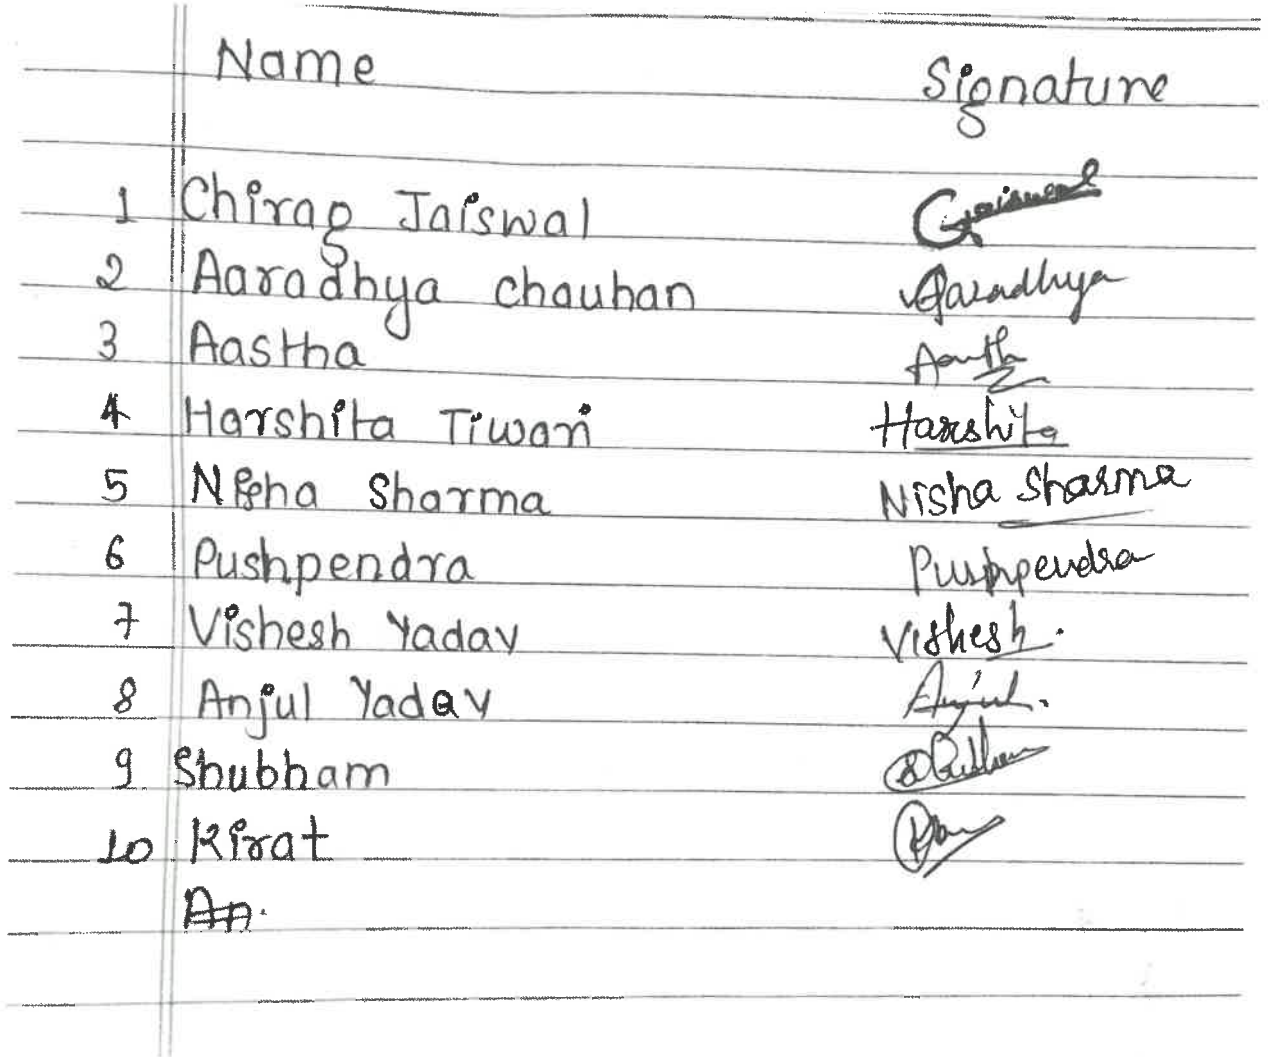 Name Signature
1 Chirag Jaiswal Gjaiswal
2 Aaradhya Chauhan Aaradhya
3 Aastha Aastha
4 Harshita Tiwari Harshita
5 Nisha Sharma Nisha Sharma
6 Pushpendra Pushpendra
7 Vishesh Yadav Vishesh.
8 Anjul Yadav Anjul.
9. Shubham Shubham
10. Kirat
An.